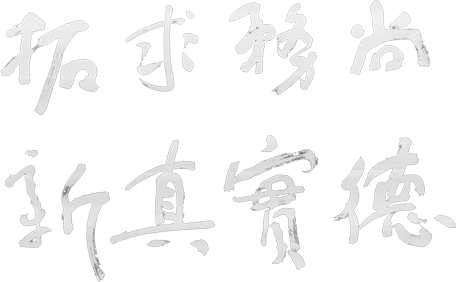 尚德
務實
求真
拓新